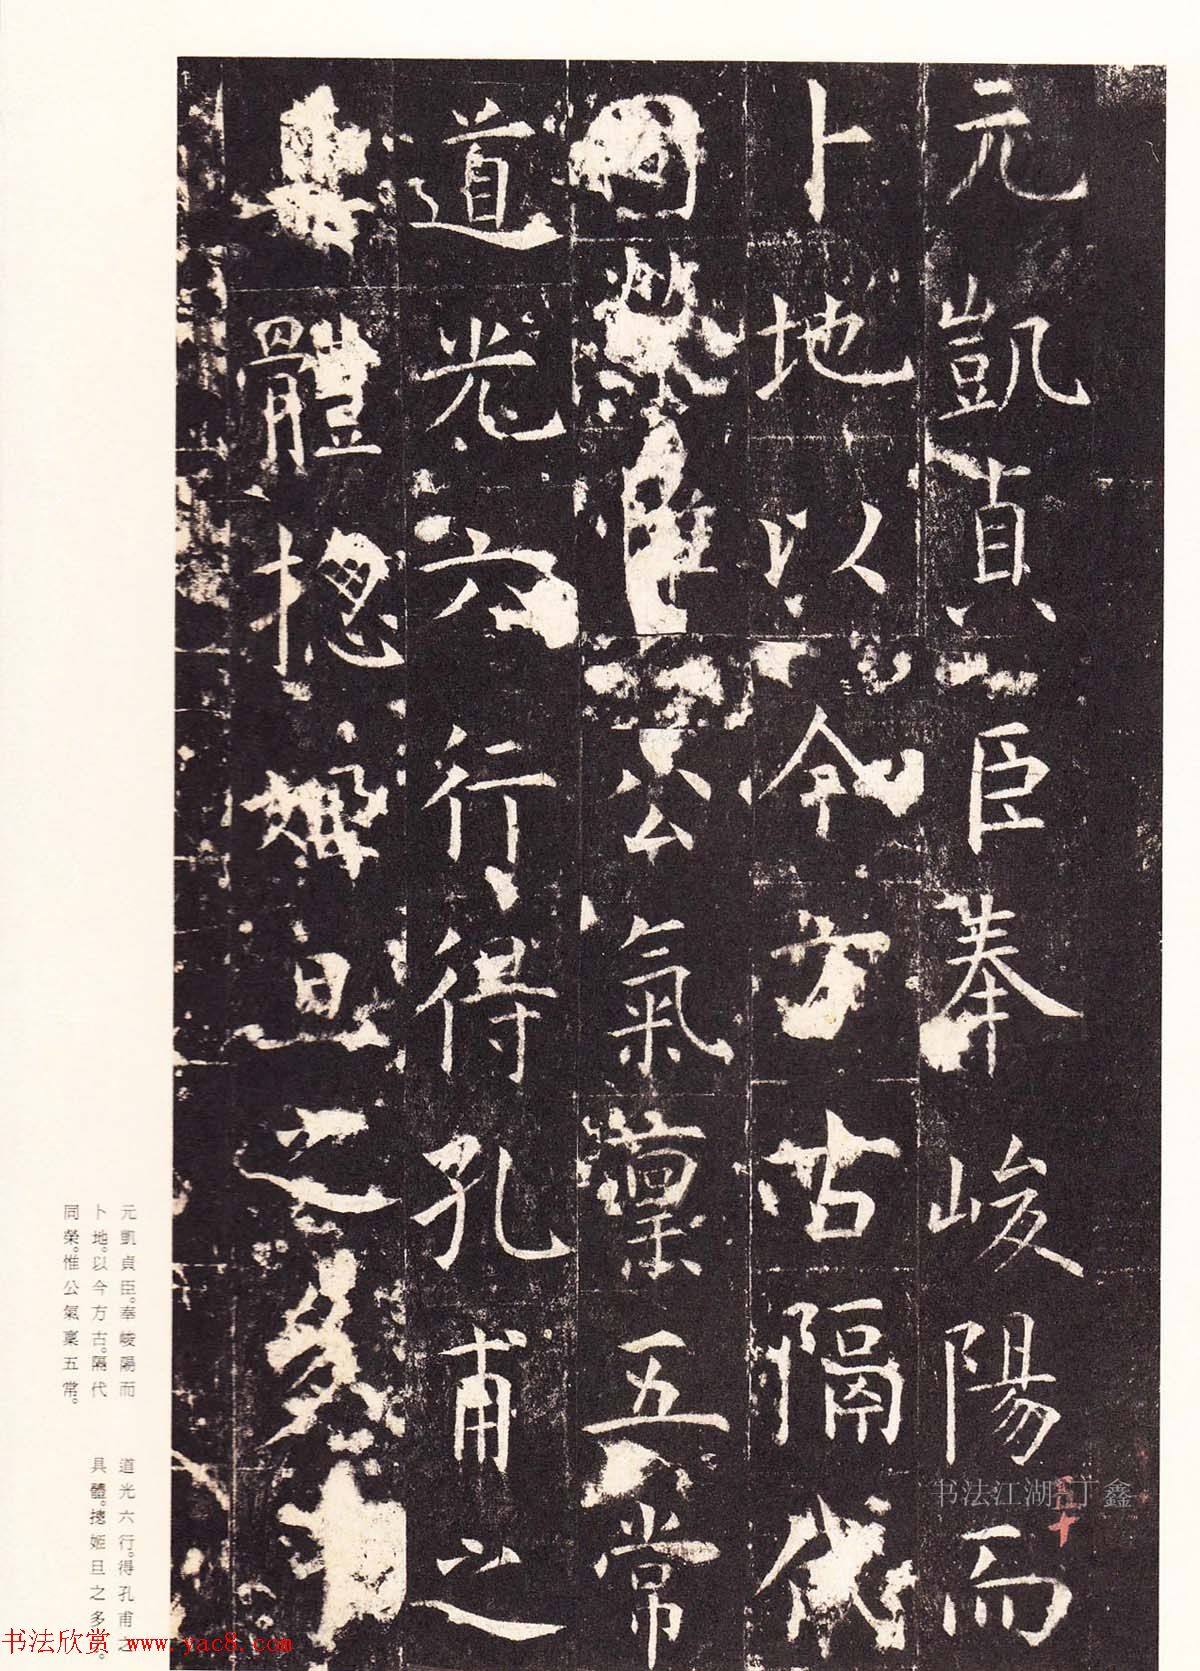 元凱貞臣奉峻陽而
卜地以今方古隔代
同榮惟公氣稟五常
道光六行得孔甫之
具體揔姬旦之多
元凱貞臣。奉峻陽而
卜地。以今方古。隔代
同榮。惟公氣稟五常。
道光六行。得孔甫之
具體。揔姬旦之多
书法江湖 丁鑫
书法欣赏 www.yac8.com